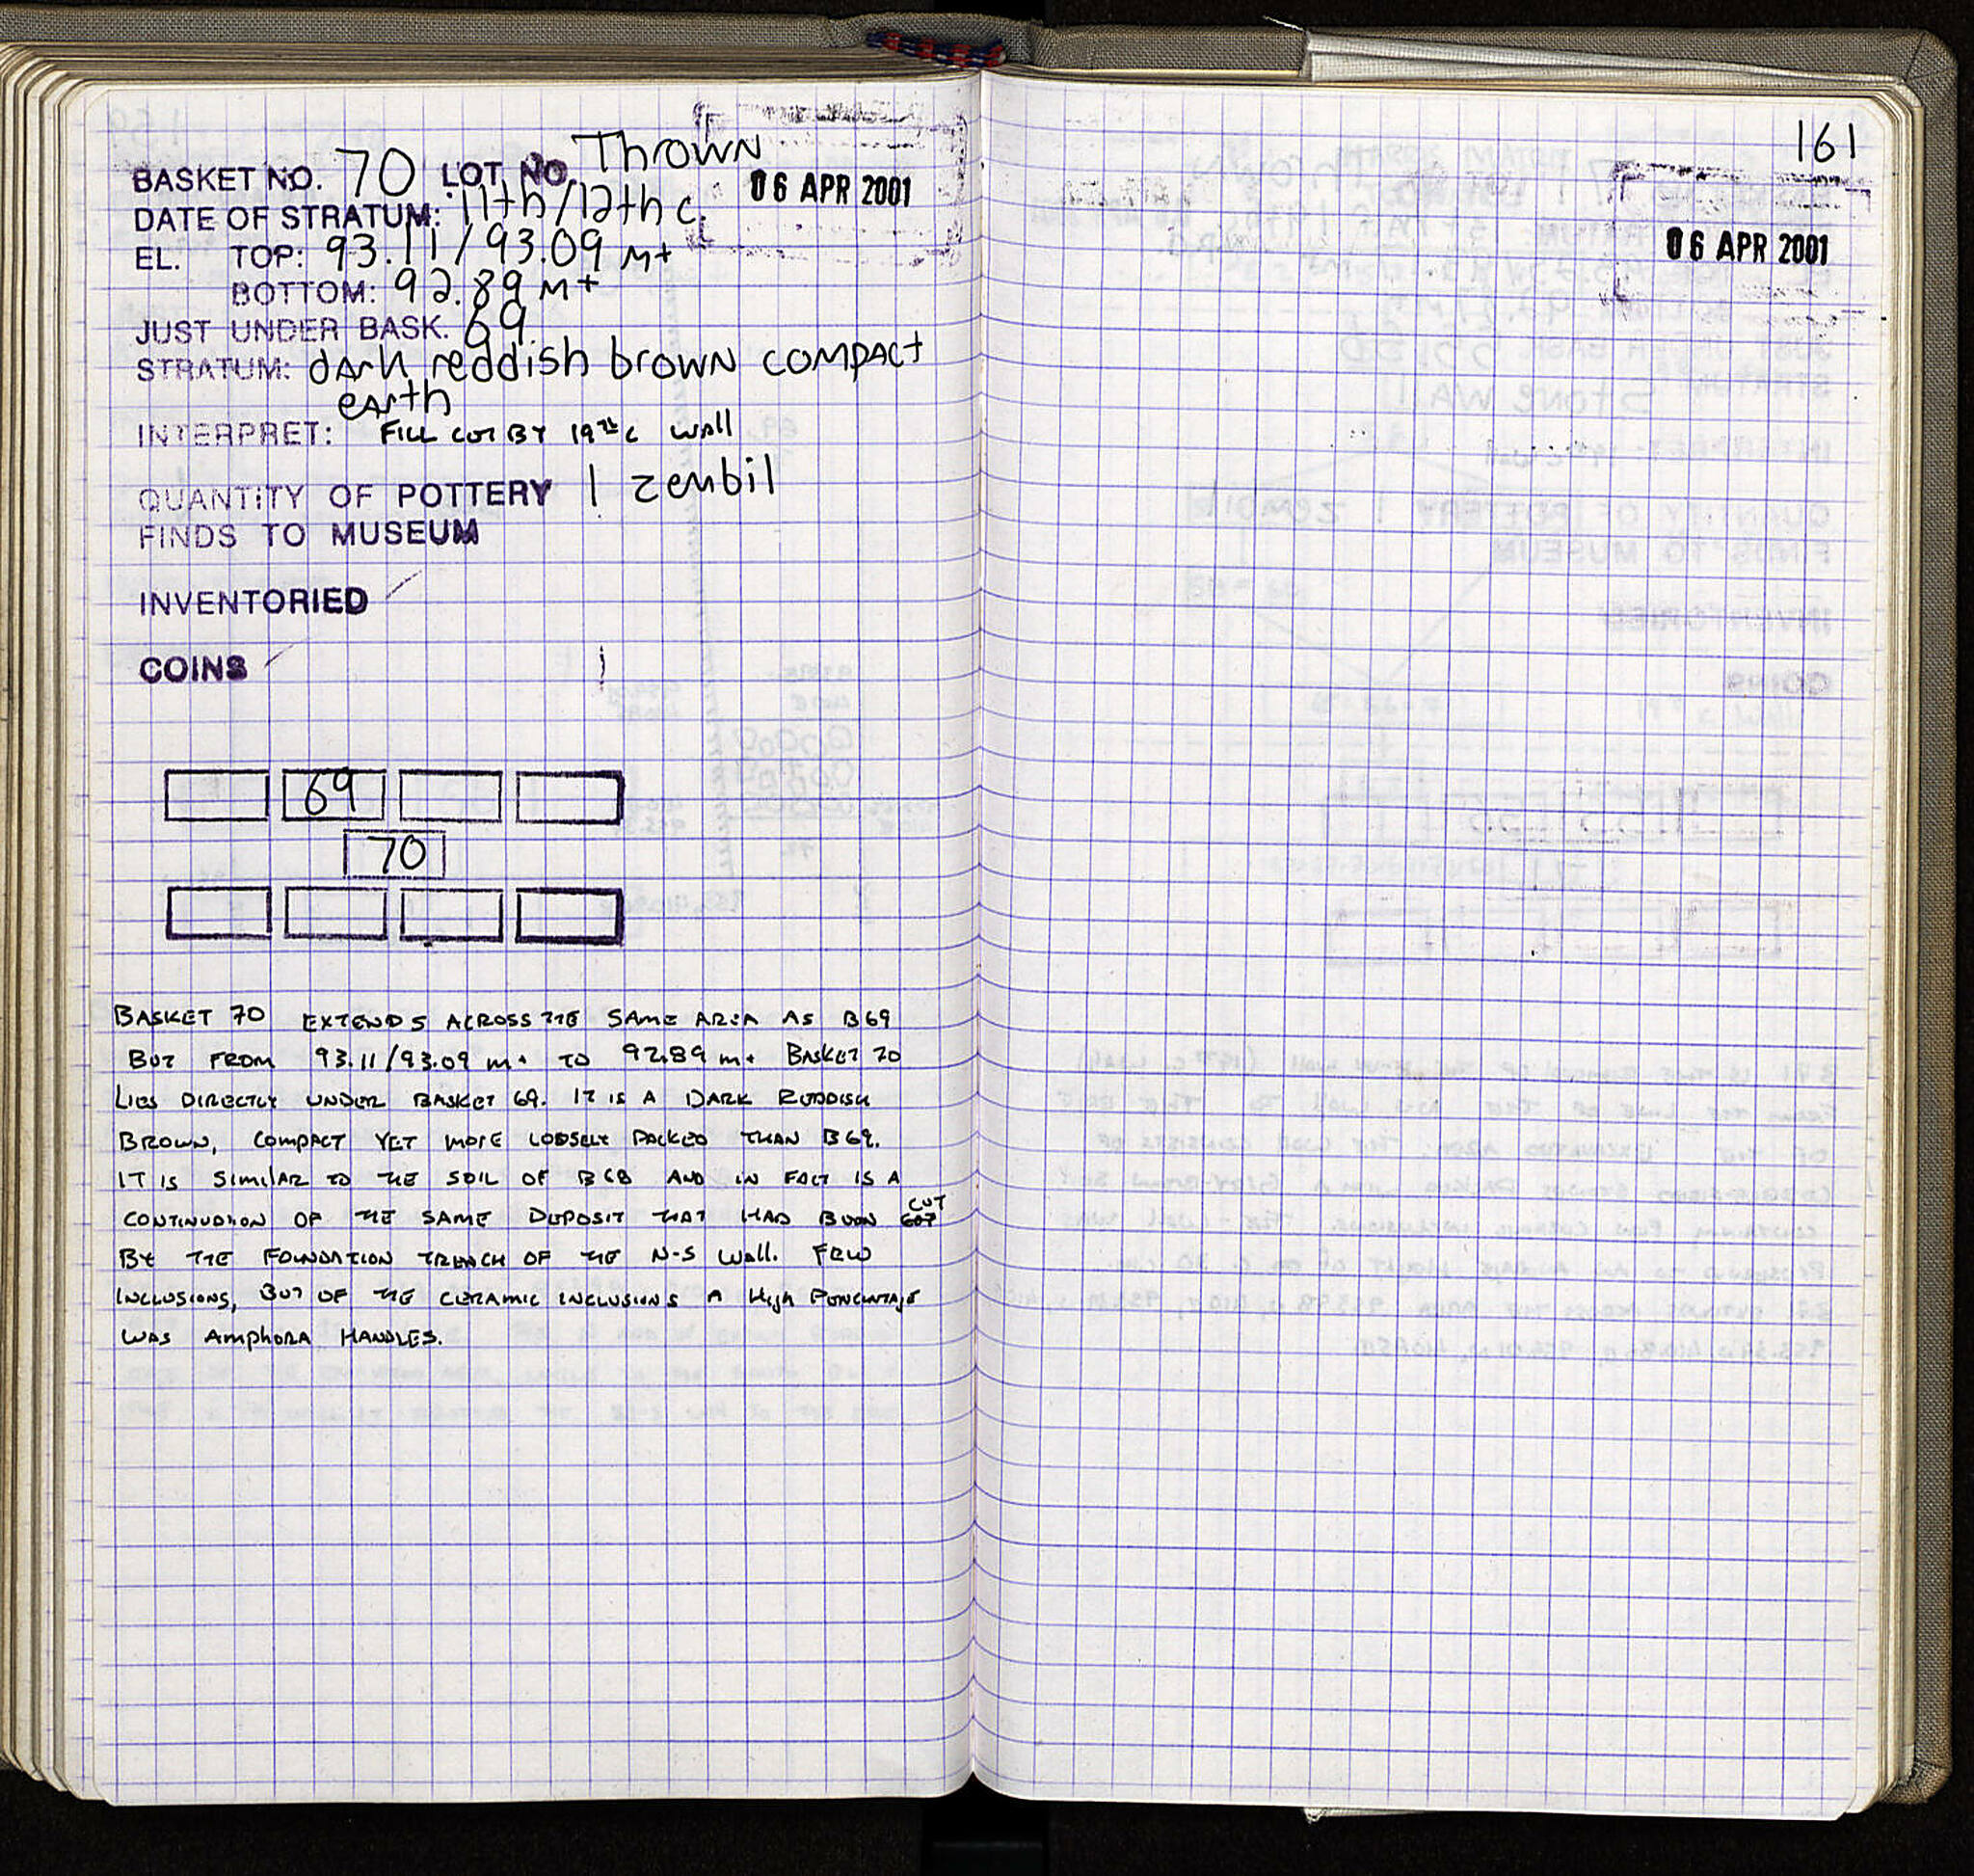 BASKET NO. 70 LOT NO. Thrown
06 APR 2001
DATE OF STRATUM: 11th/12th c.
EL. TOP: 93.11/93.09 m+
BOTTOM: 92.89 m+
JUST UNDER BASK. 69
STRATUM: dark reddish brown compact
earth
INTERPRET: Fill cut by 19th c wall
QUANTITY OF POTTERY 1 zembil
FINDS TO MUSEUM
INVENTORIED
COINS
69
70
BASKET 70 EXTENDS ACROSS THE SAME AREA AS B69
BUT FROM 93.11/93.09 m+ TO 92.89 m+ BASKET 70
LIES DIRECTLY UNDER BASKET 69. IT IS A DARK REDDISH
BROWN, COMPACT YET MORE LOOSELY PACKED THAN B69.
IT IS SIMILAR TO THE SOIL OF B68 AND IN FACT IS A
CONTINUATION OF THE SAME DEPOSIT THAT HAD BEEN CUT
BY THE FOUNDATION TRENCH OF THE N-S WALL. FEW
INCLUSIONS, BUT OF THE CERAMIC INCLUSIONS A HIGH PERCENTAGE
WAS AMPHORA HANDLES.
161
06 APR 2001